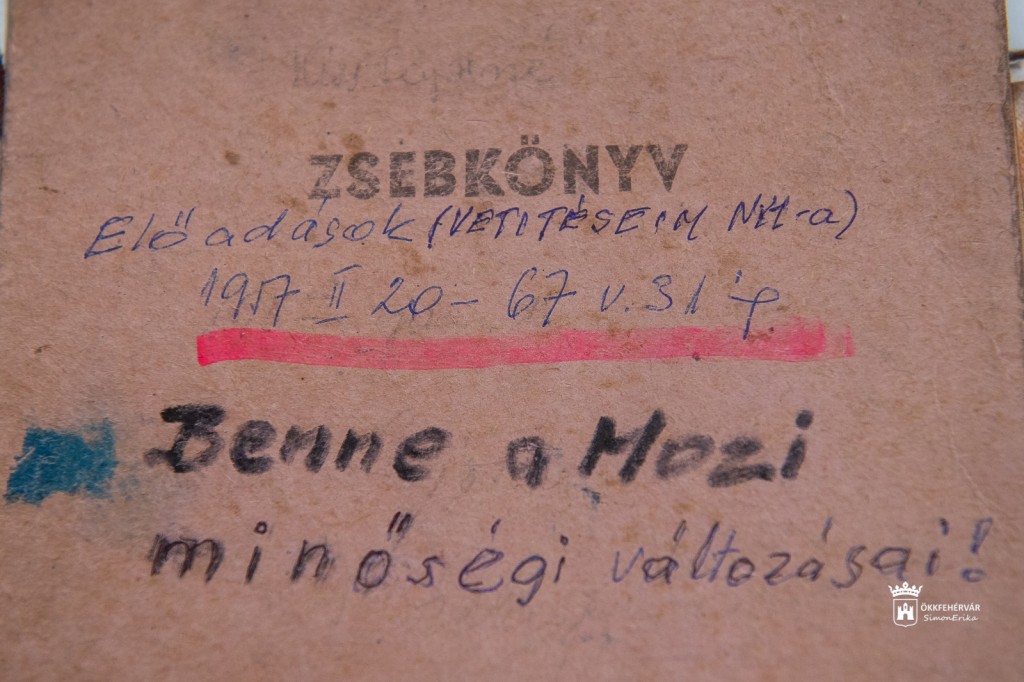 ZSEBKÖNYV
Előadások (VETITÉSEIM NH-a)
1957 II 20 - 67 V. 31 ig
Benne a Mozi
minőségi változásai!
ÖKKFEHÉRVÁR
SimonErika